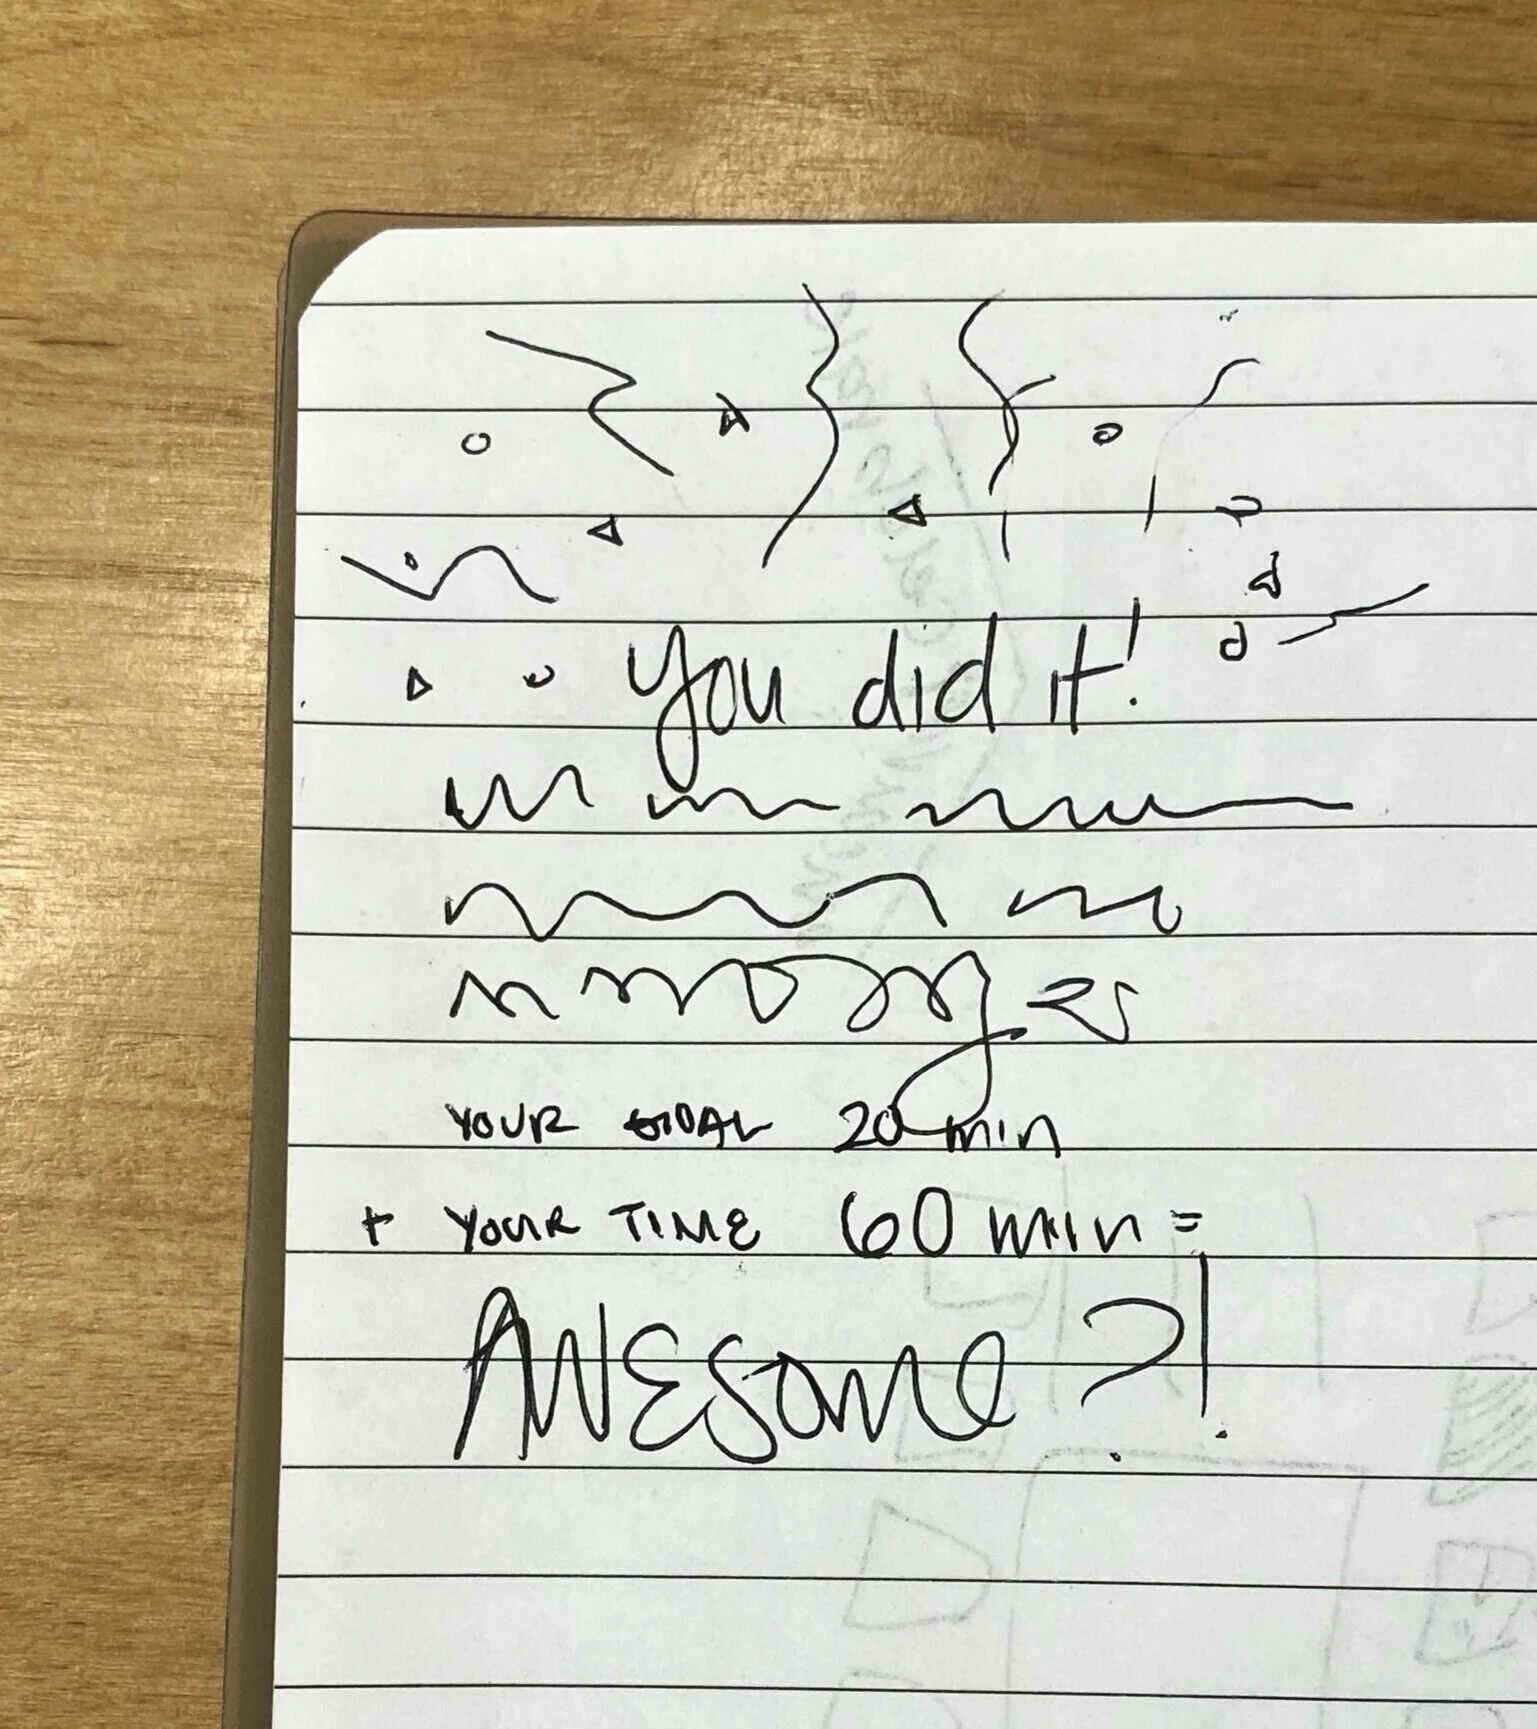 you did it!
YOUR GOAL 20 min
+ YOUR TIME 60 min =
AWESome ?!